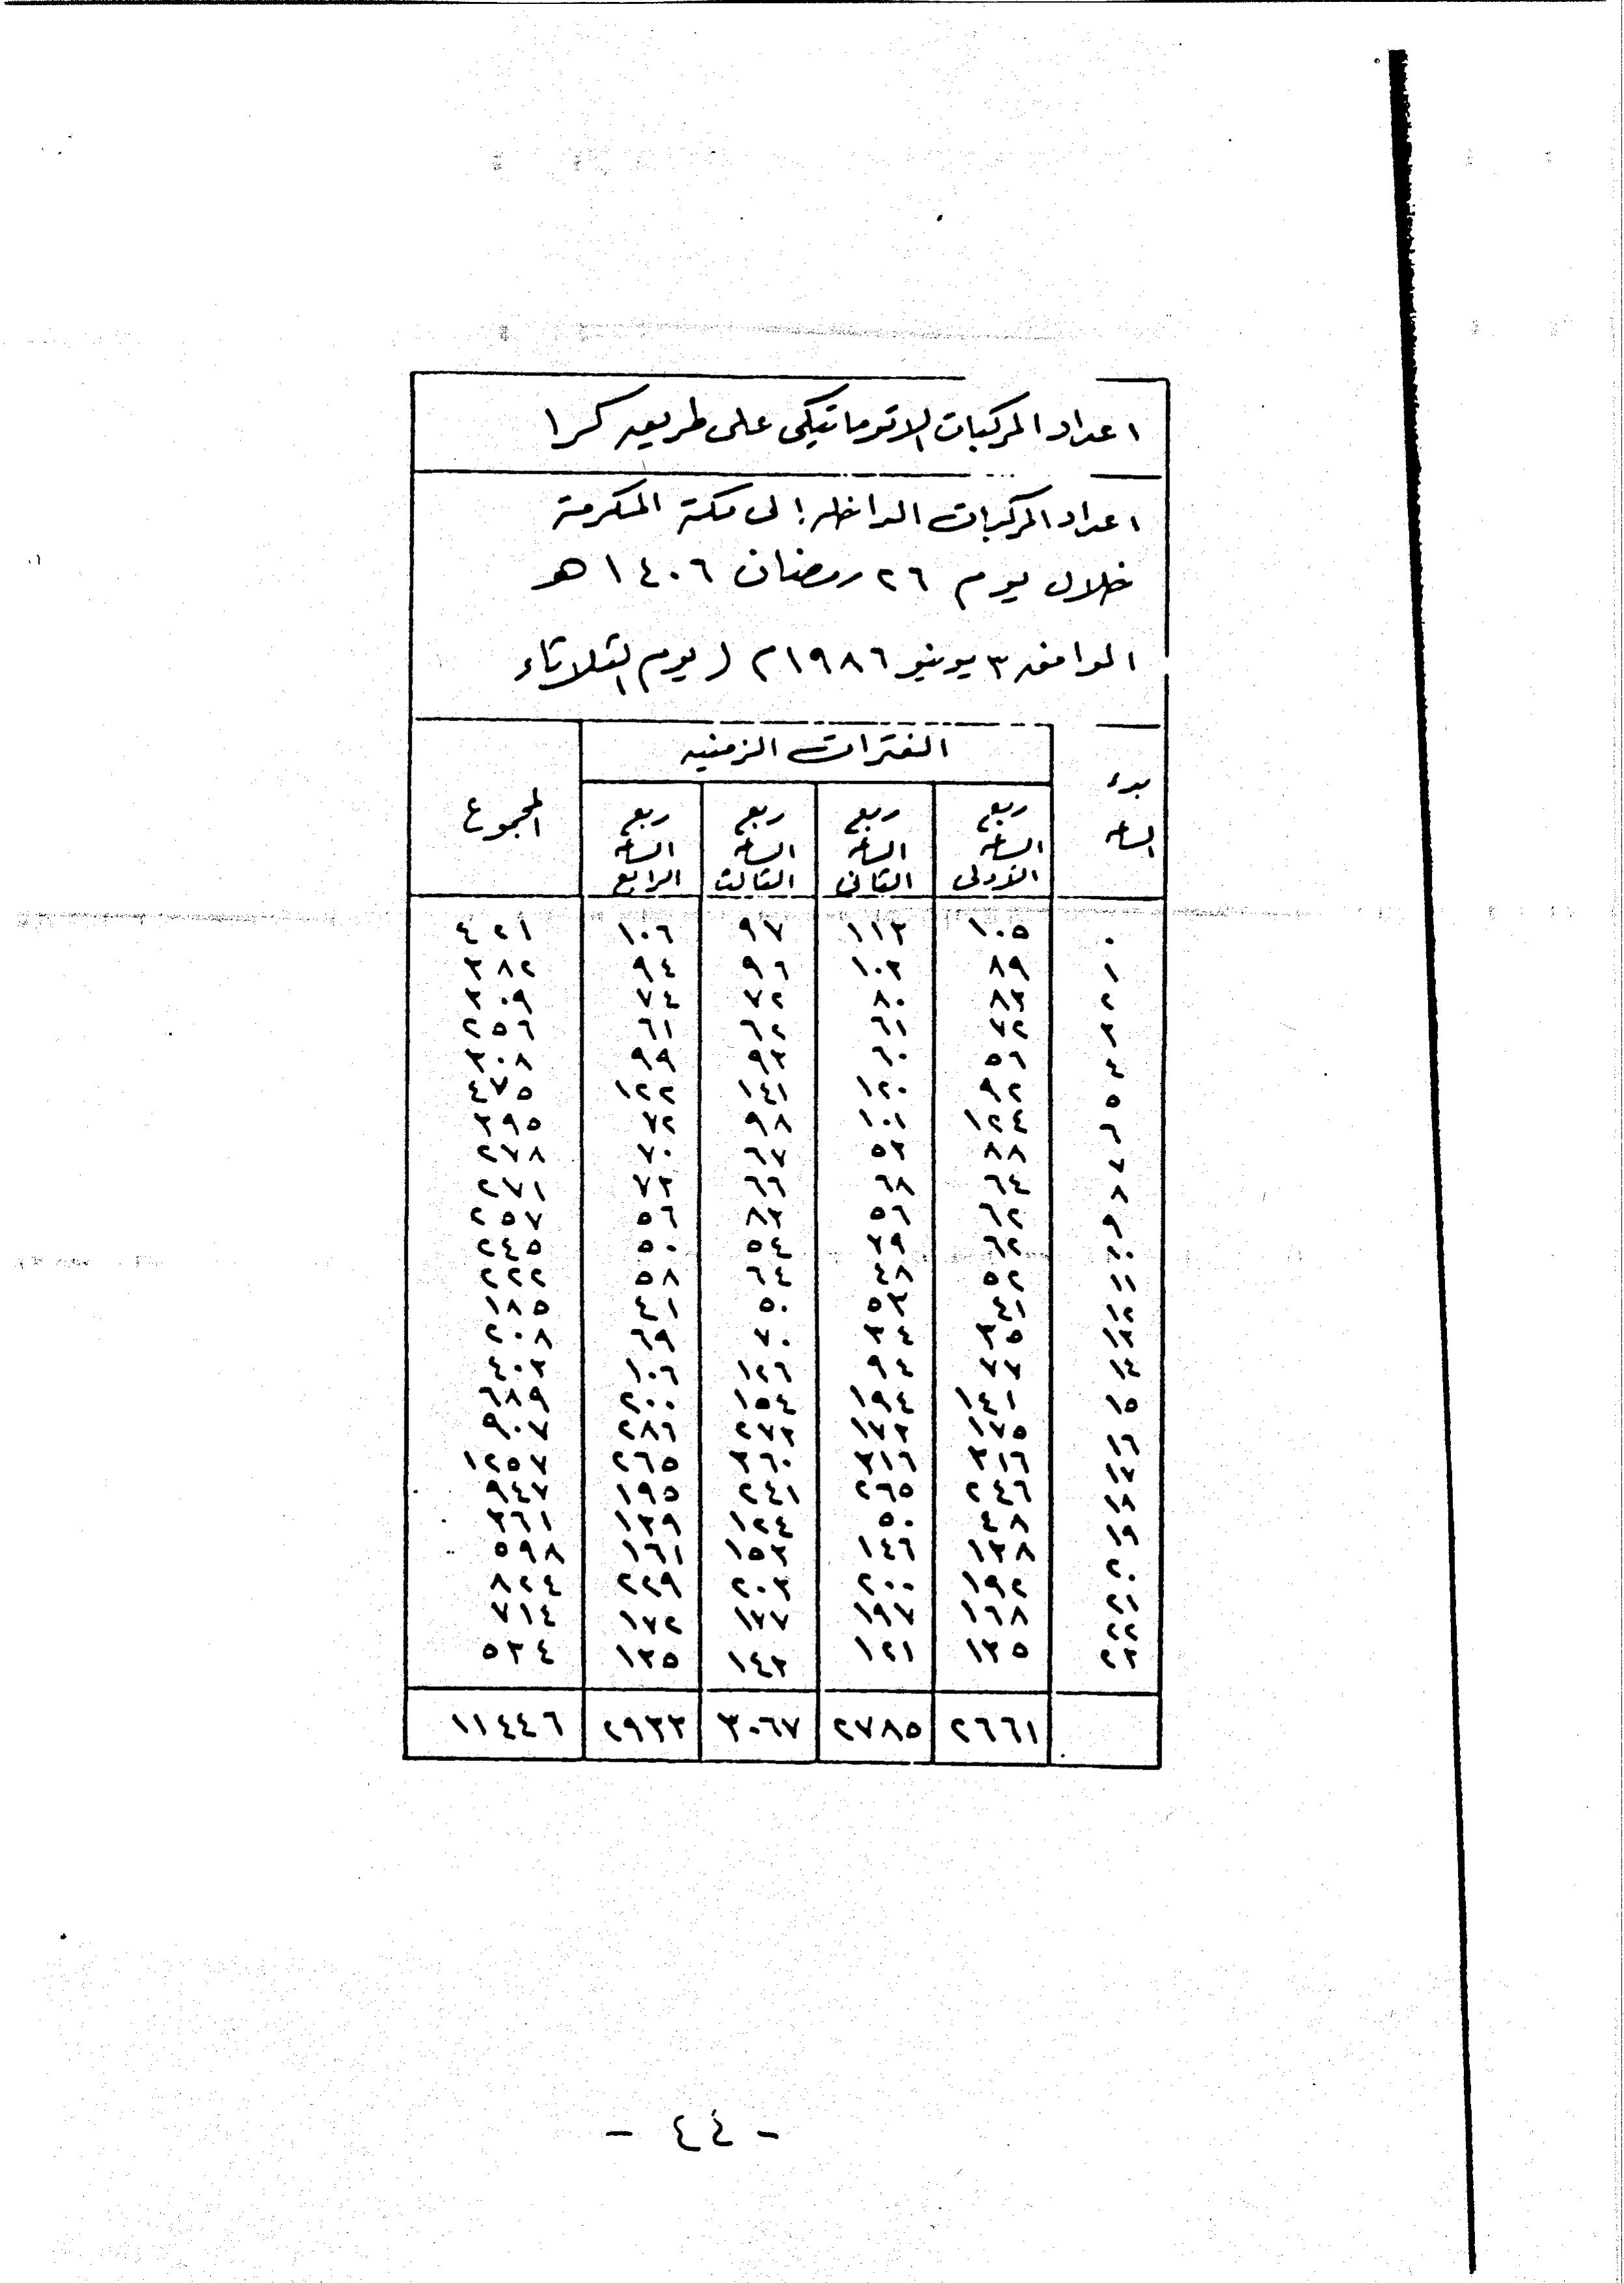 اعداد المركبات الاتوماتيكى على طريق كرا
اعداد المركبات الداخله الى مكة المكرمة
خلال يوم ٢٦ رمضان ١٤٠٦ هـ
الموافق ٣ يونيو ١٩٨٦م ( يوم الثلاثاء
بدء الساعه | الفترات الزمنيه | المجموع
ربع الساعه الاولى | ربع الساعه الثانى | ربع الساعه الثالث | ربع الساعه الرابع
٠ ١٠٥ ١١٣ ٩٧ ١٠٦ ٤٢١
١ ٨٩ ١٠٣ ٩٦ ٩٤ ٣٨٢
٢ ٨٣ ٨٠ ٧٢ ٧٤ ٣٠٩
٣ ٧٢ ٦١ ٦٢ ٦١ ٢٥٦
٤ ٥٦ ٦٠ ٩٣ ٩٩ ٣٠٨
٥ ٩٢ ١٢٠ ١٤١ ١٢٢ ٤٧٥
٦ ١٢٤ ١٠١ ٩٨ ٧٢ ٣٩٥
٧ ٨٨ ٥٣ ٦٧ ٧٠ ٢٧٨
٨ ٦٤ ٦٨ ٦٦ ٧٣ ٢٧١
٩ ٦٢ ٥٦ ٨٣ ٥٦ ٢٥٧
١٠ ٦٢ ٧٩ ٥٤ ٥٠ ٢٤٥
١١ ٥٢ ٤٨ ٦٤ ٥٨ ٢٢٢
١٢ ٤١ ٥٣ ٥٠ ٤١ ١٨٥
١٣ ٣٥ ٣٤ ٧٠ ٦٩ ٢٠٨
١٤ ٧٧ ٩٤ ١٢٦ ١٠٦ ٤٠٣
١٥ ١٤١ ١٩٤ ١٥٤ ٢٠٠ ٦٨٩
١٦ ١٧٥ ١٧٣ ٢٧٣ ٢٨٦ ٩٠٧
١٧ ٣١٦ ٣١٦ ٣٦٠ ٢٦٥ ١٢٥٧
١٨ ٢٤٦ ٢٦٥ ٢٤١ ١٩٥ ٩٤٧
١٩ ٤٨ ٥٠ ١٢٤ ١٣٩ ٣٦١
٢٠ ١٣٨ ١٤٦ ١٥٣ ١٦١ ٥٩٨
٢١ ١٩٢ ٢٠٠ ٢٠٣ ٢٢٩ ٨٢٤
٢٢ ١٦٨ ١٩٧ ١٧٧ ١٧٢ ٧١٤
٢٣ ١٣٥ ١٢١ ١٤٣ ١٣٥ ٥٣٤
٢٦٦١ ٢٧٨٥ ٣٠٦٧ ٢٩٣٣ ١١٤٤٦
- ٤٤ -